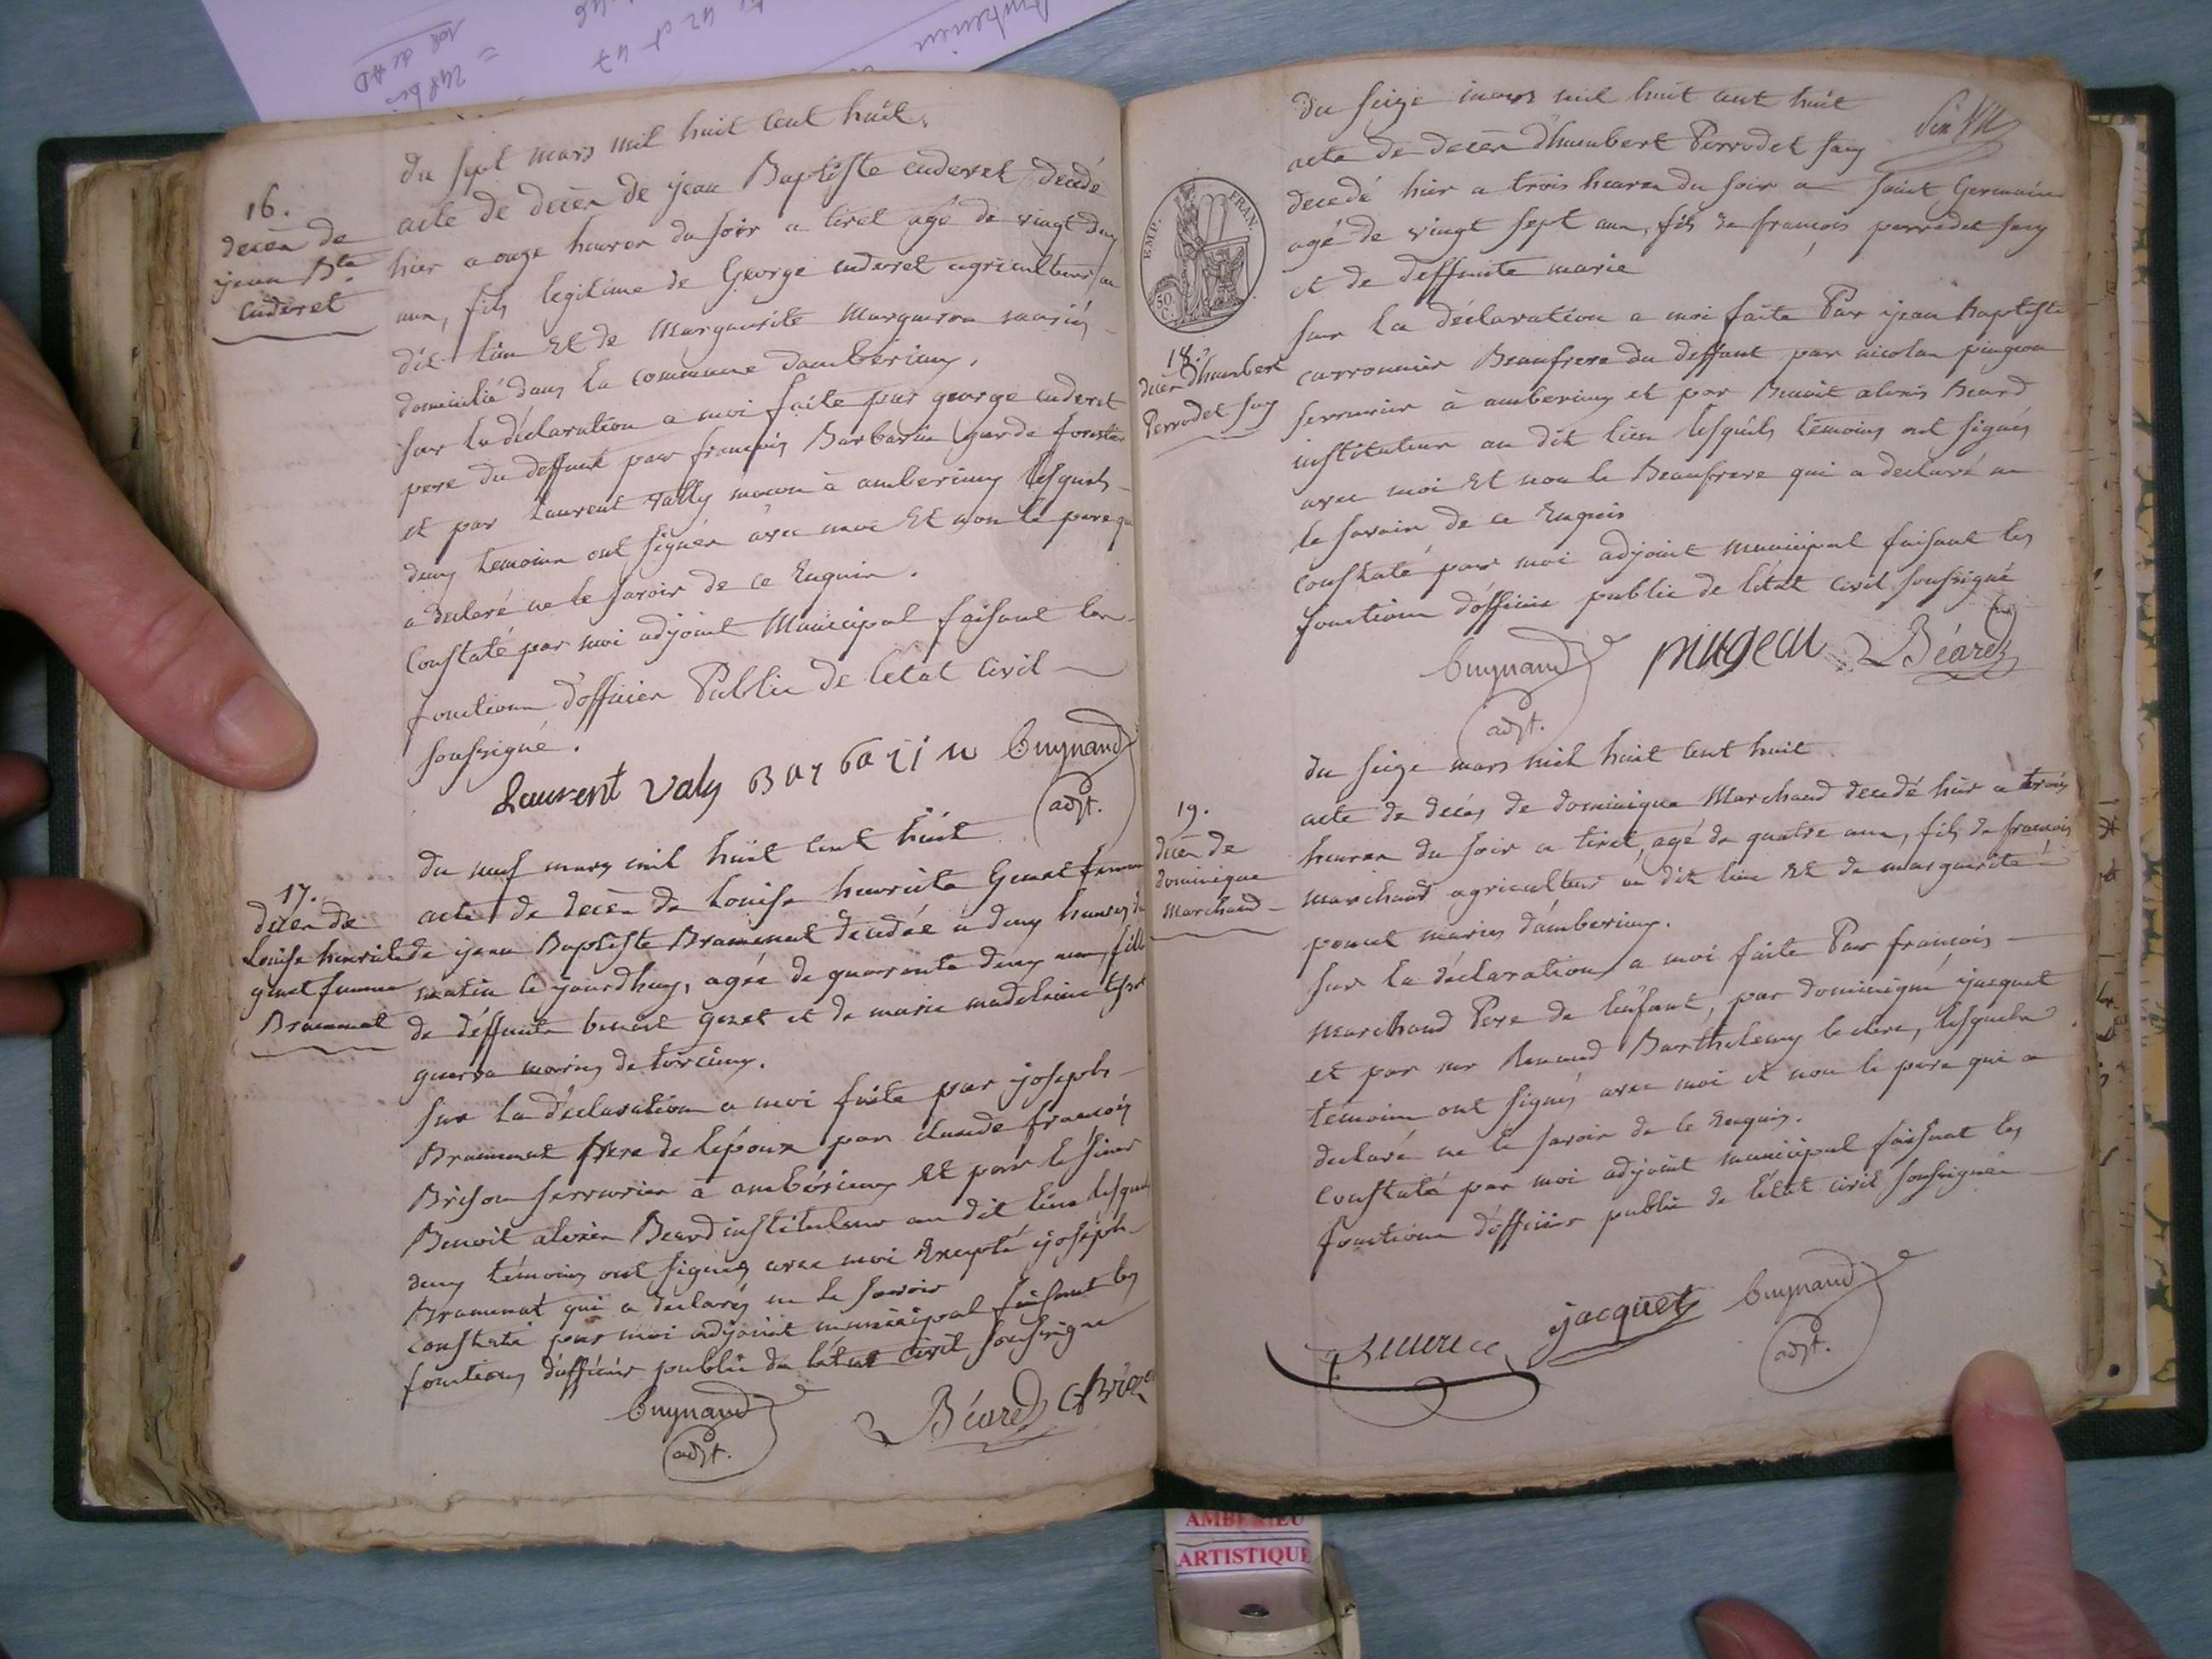 16.
decès de
jean Bte
Cuderet
du sept mars mil huit cent huit,
acte de decès de jean Baptiste cuderet decedé
hier a onze heures du soir a tiret agé de vingt deux
ans, fils legitime de George cuderet agriculteur au
dit lieu et de Marguerite Margueron mariés
domicilié dans la commune dambérieux.
sur la déclaration a moi faite par george cuderet
pere du deffunt par françois Barbarin garde forestier
et par Laurent Vally maçon à amberieux lesquels
deux temoins ont signés avec moi et non le pere qui
a declaré ne le savoir de ce Enquis.
Constaté par moi adjoint Municipal faisant les
fonctions d'officier Public de letat civil
soussigné.
Laurent Valy Barbarin Guynand
adjt.
17.
decès de
Louise henriete
genet femme
Bramenat
du neuf mars mil huit cent huit
acte de decès de Louise henriete Genet femme
de jean Baptiste Bramenat decedée a deux heures du
matin ce jourdhuy, agée de quarante deux ans, fille
de deffunts benoit genet et de marie madeleine
mariés de torcieux.
sur la déclaration a moi faite par joseph
Bramenat frere de lépoux par claude françois
Brison serrurier à ambérieux et par le sieur
Benoit alexis Beard instituteur au dit lieu lesquels
deux témoins ont signés avec moi Excepté joseph
Bramenat qui a declaré ne le savoir
constaté par moi adjoint municipal faisant les
fonctions d'officier public de létat civil soussigné
Guynand
adjt.
Béard
du seize mars mil huit cent huit
acte de decès d'humbert Perrodet say
decedé hier a trois heures du soir a saint Germain
agé de vingt sept ans, fils de françois perrodet say
et de deffunte marie
EMP. FRAN.
50. C.
18.
decès d'humbert
Perrodet say
sur la déclaration a moi faite Par jean baptiste
carronnier Beaufrere du deffunt par nicolas pingeon
serrurier à amberieux et par Benoit alexis Beard
instituteur au dit lieu lesquels témoins ont signés
avec moi et non le Beaufrere qui a declaré ne
le savoir de ce Enquis
constaté par moi adjoint municipal faisant les
fonctions d'officier public de létat civil soussigné
Guynand pingeau Béard
adjt.
19.
decès de
dominique
Marchand
du seize mars mil huit cent huit
acte de decés de dominique Marchand decedé hier a trois
heures du soir a tiret, agé de quatre ans, fils de françois
marchand agriculteur au dit lieu et de marguerite
poncet mariés d'amberieux.
sur la déclaration a moi faite Par françois
marchand Pere de lenfant, par dominique jacquet
et par mr Renaud Barthelemy leclerc, lesquels
temoins ont signés avec moi et non le pere qui a
declaré ne le savoir de ce Enquis.
Constaté par moi adjoint municipal faisant les
fonctions d'officier public de létat civil soussignés
jacquet Guynand
adjt.
AMBERIEU
ARTISTIQUE